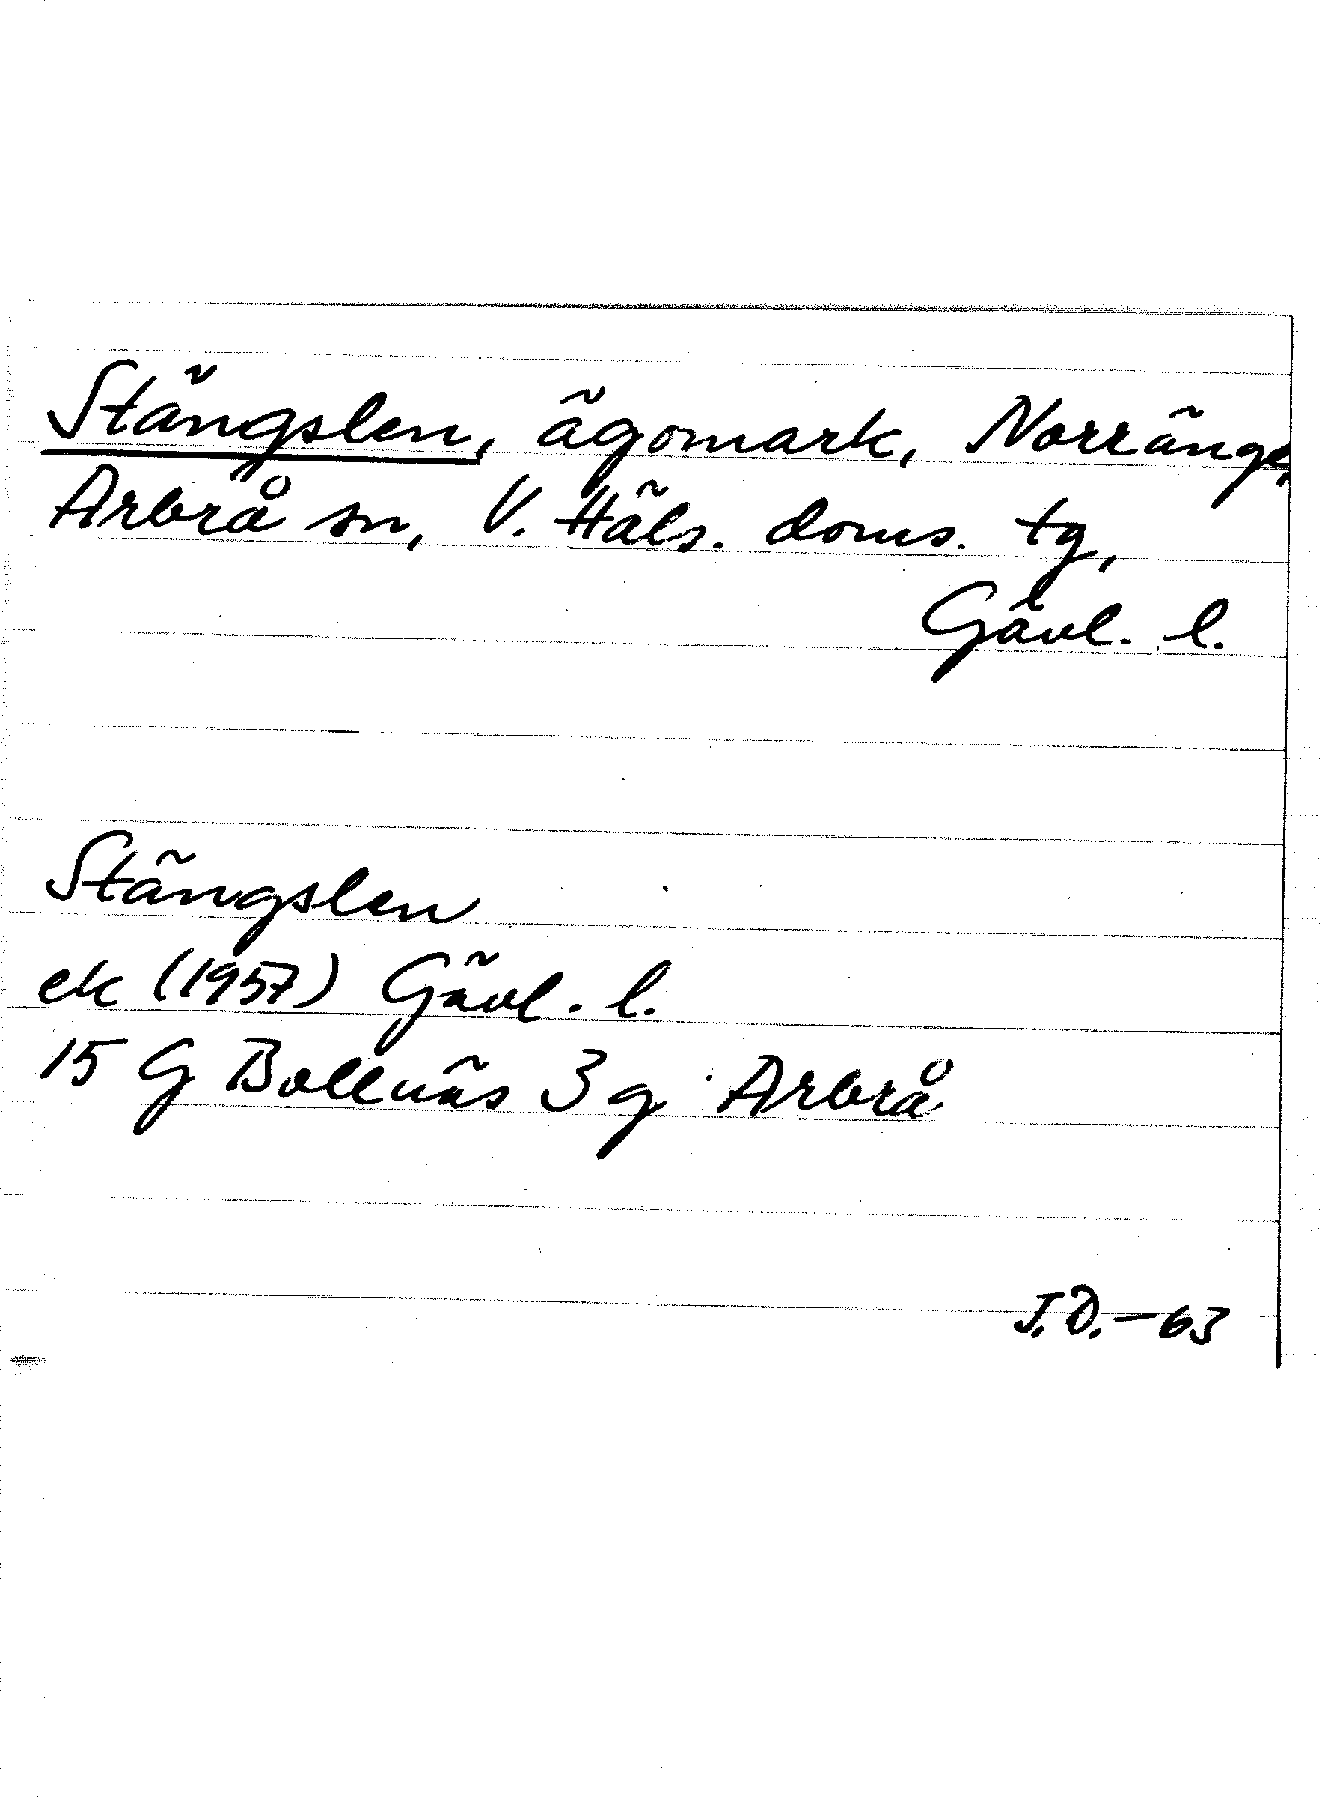 Stängslen, ägomark, Norränge,
Arbrå sn, V. Häls. doms. tg,
Gävl. l.
Stängslen
ek (1957) Gävl. l.
15 G Bollnäs 3 g Arbrå
J.D.—63